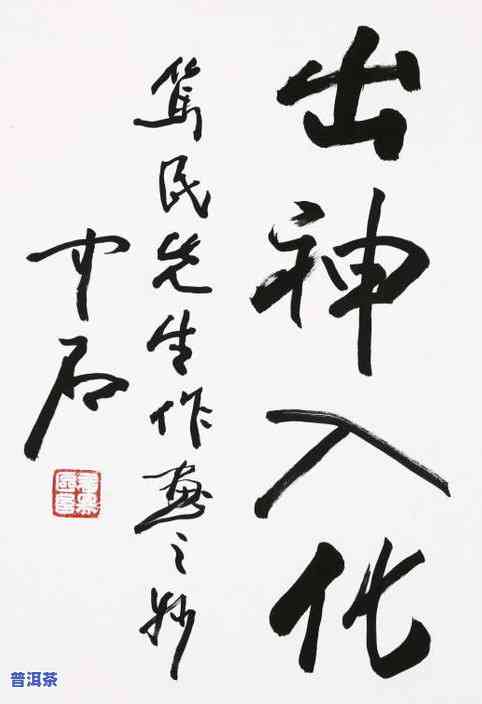 出神入化
篤民先生作畫之妙
中石
普洱茶